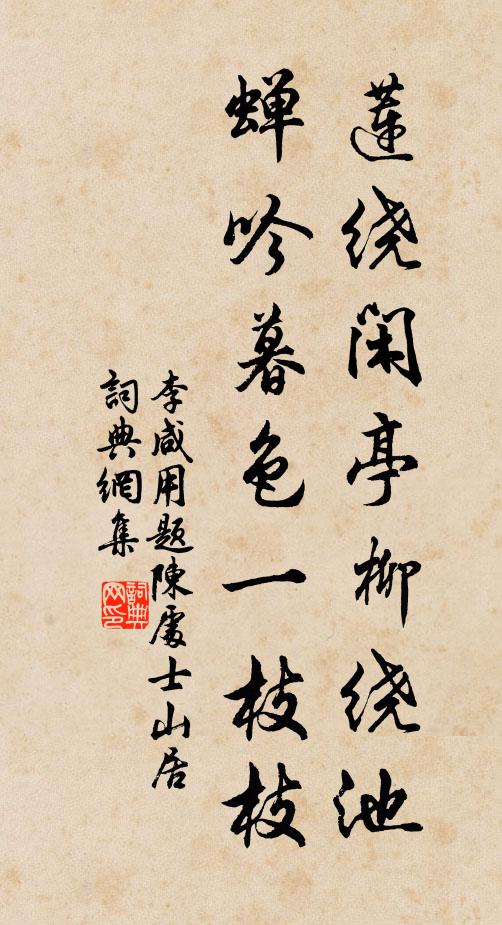 莲绕闲亭柳绕池
蝉吟暮色一枝枝
李咸用题陳處士山居
詞典網集
詞典网印